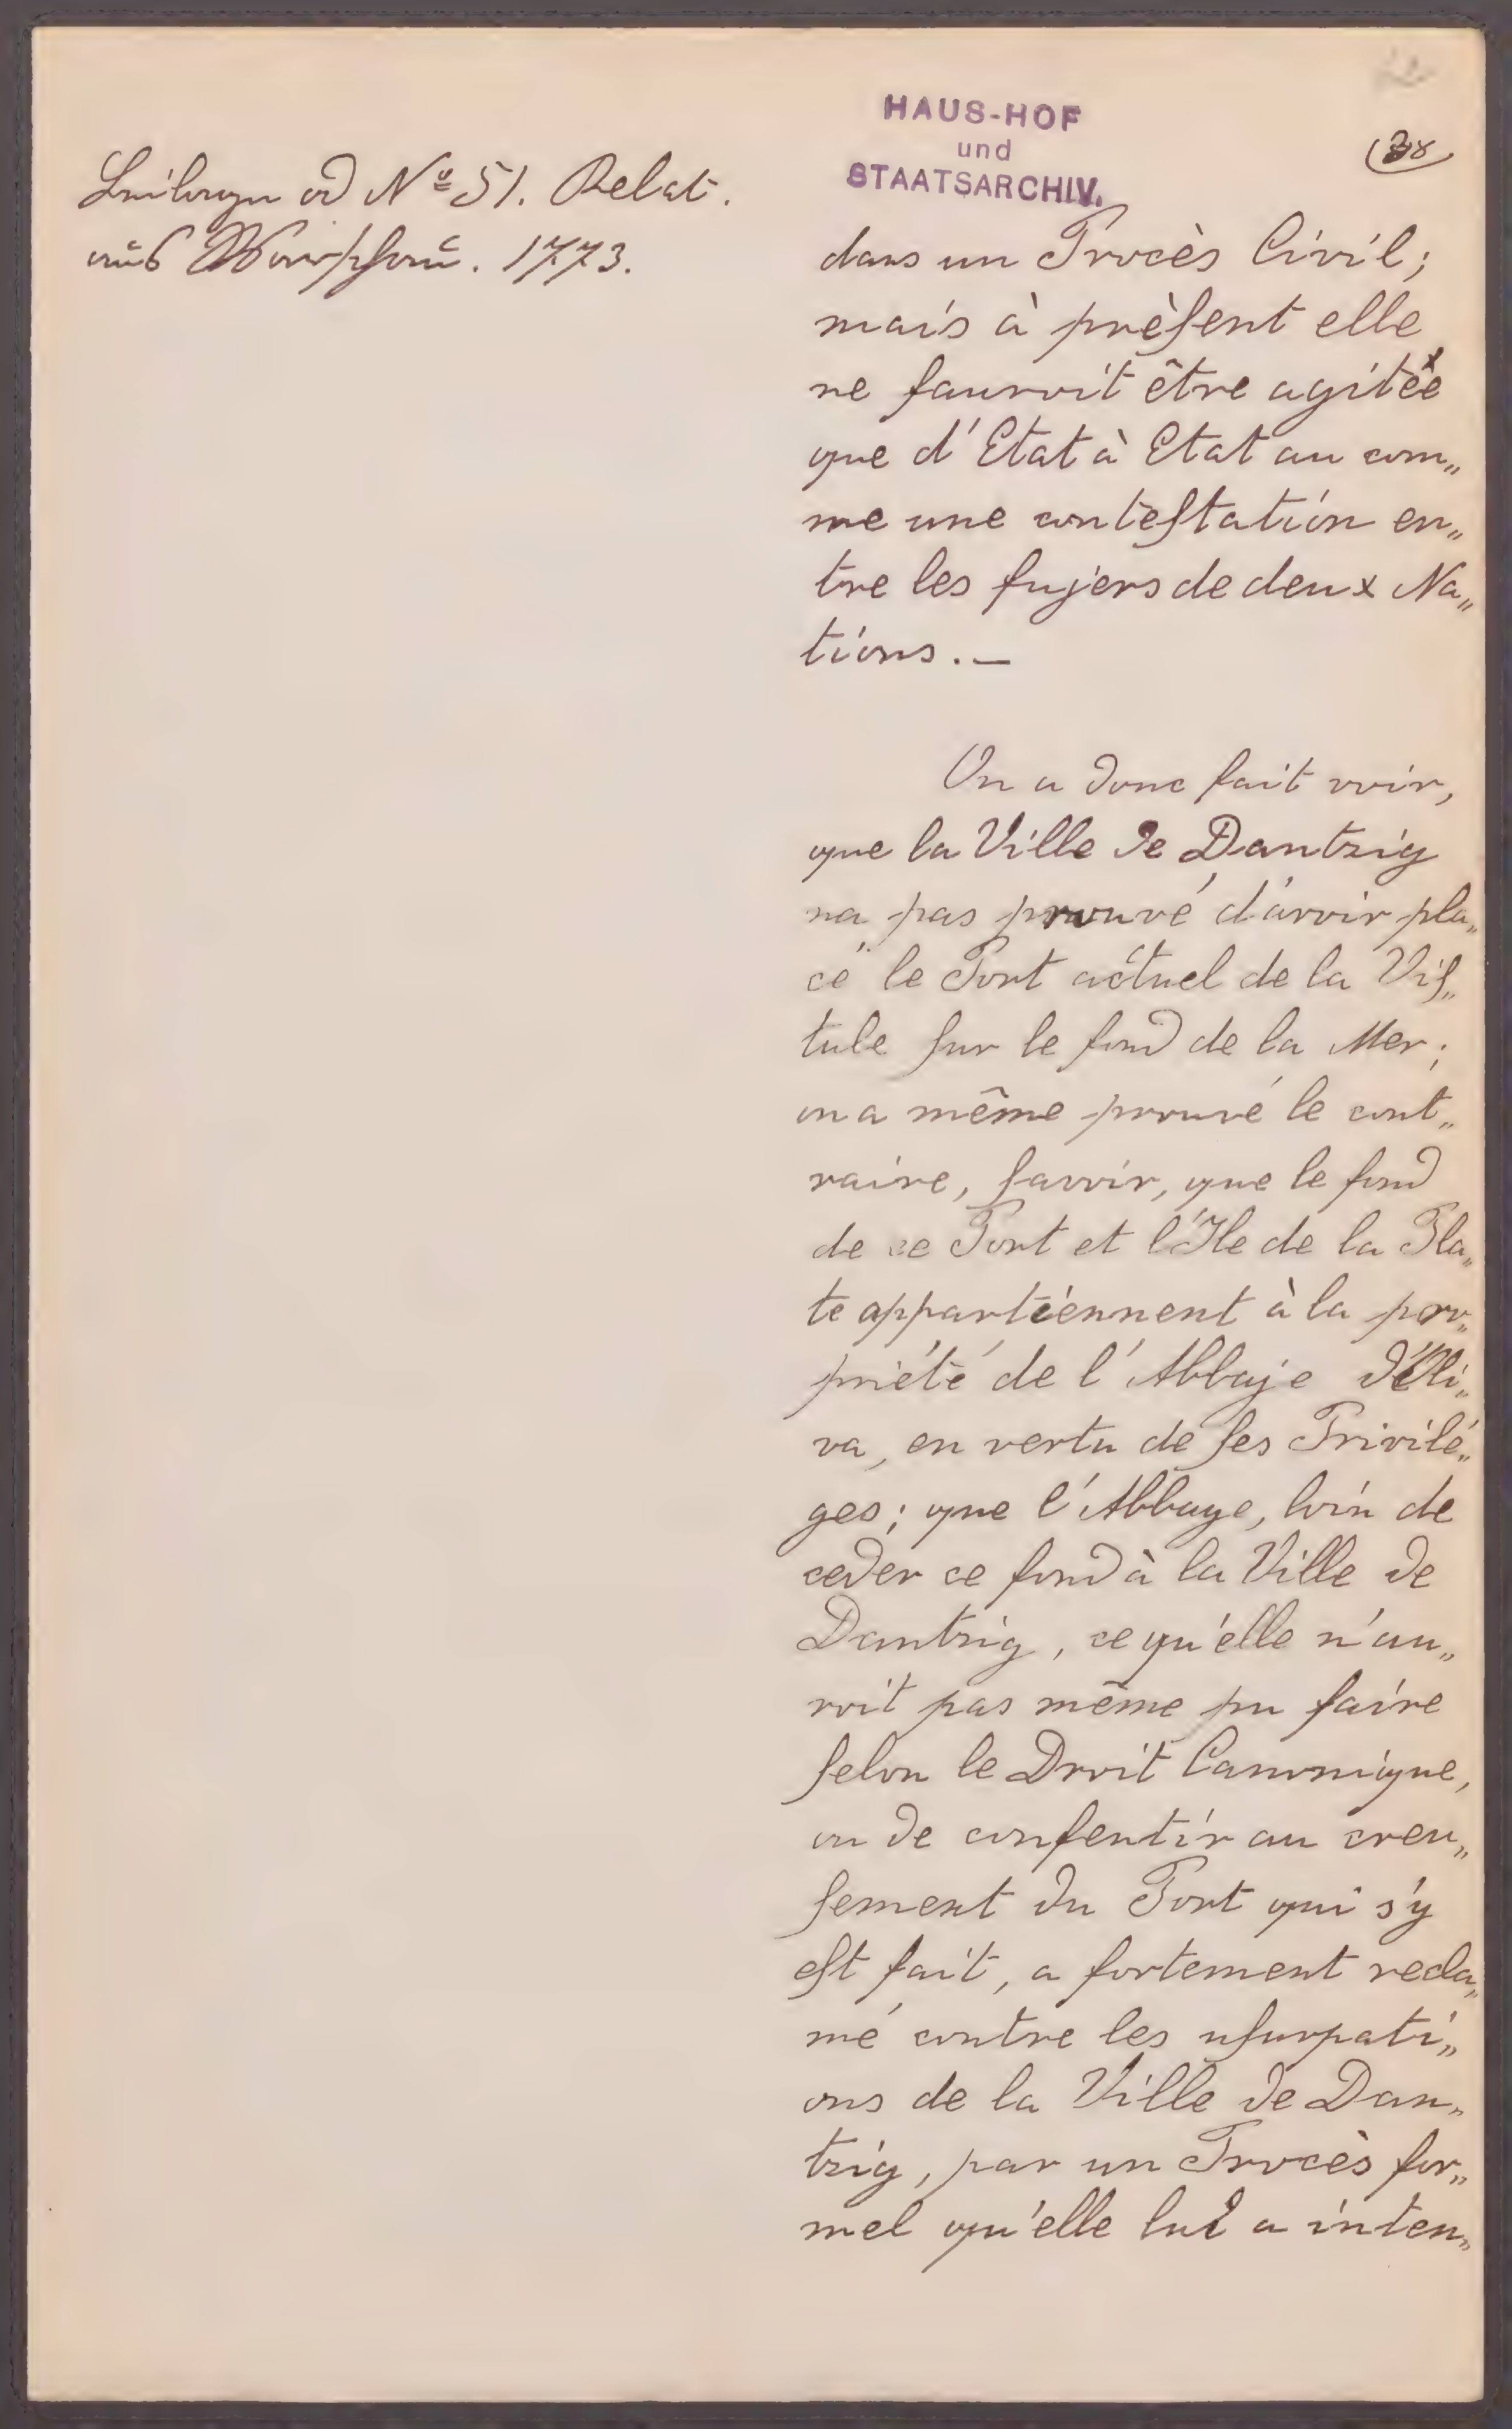 HAUS-HOF
und
STAATSARCHIV.
38
Beilagen ad Nº 51. Relat.
aus Warschau. 1773.
dans un Procès Civil;
mais à prèſent elle
ne ſauroit être agitée
que d'Etat à Etat au com„
me une conteſtation en„
tre les ſujers de deux Na„
tions. —
On a donc fait voir,
que la Ville de Dantzig
na pas prouvé d'avoir pla„
cé le Port actuel de la Viſ„
tule ſur le fond de la Mer;
on a même prouvé le cont„
raire, ſavoir, que le fond
de ce Port et l'Ile de la Pla„
te appartiennent à la pro„
priété de l'Abbaje d'Oli„
va, en vertu de ſes Privilé„
ges; que l'Abbaye, loin de
ceder ce fond à la Ville de
Dantzig, ce qu'elle n'au„
roit pas même pu faire
ſelon le Droit Canonique,
ou de conſentir au creu„
ſement du Port qui s'y
eſt fait, a fortement recla„
mé contre les uſurpati„
ons de la Ville de Dan„
tzig, par un Procès for„
mel qu'elle lui a inten„